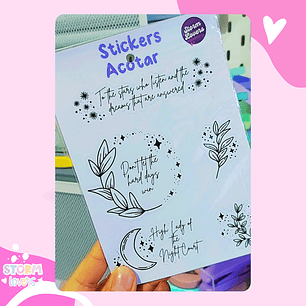 Stickers
Acotar
Storm
Lovers
To the stars who listen and the
dreams that are answered
Don't let the
hard days
win
High Lady of
the
Night Court
STORM
lovers